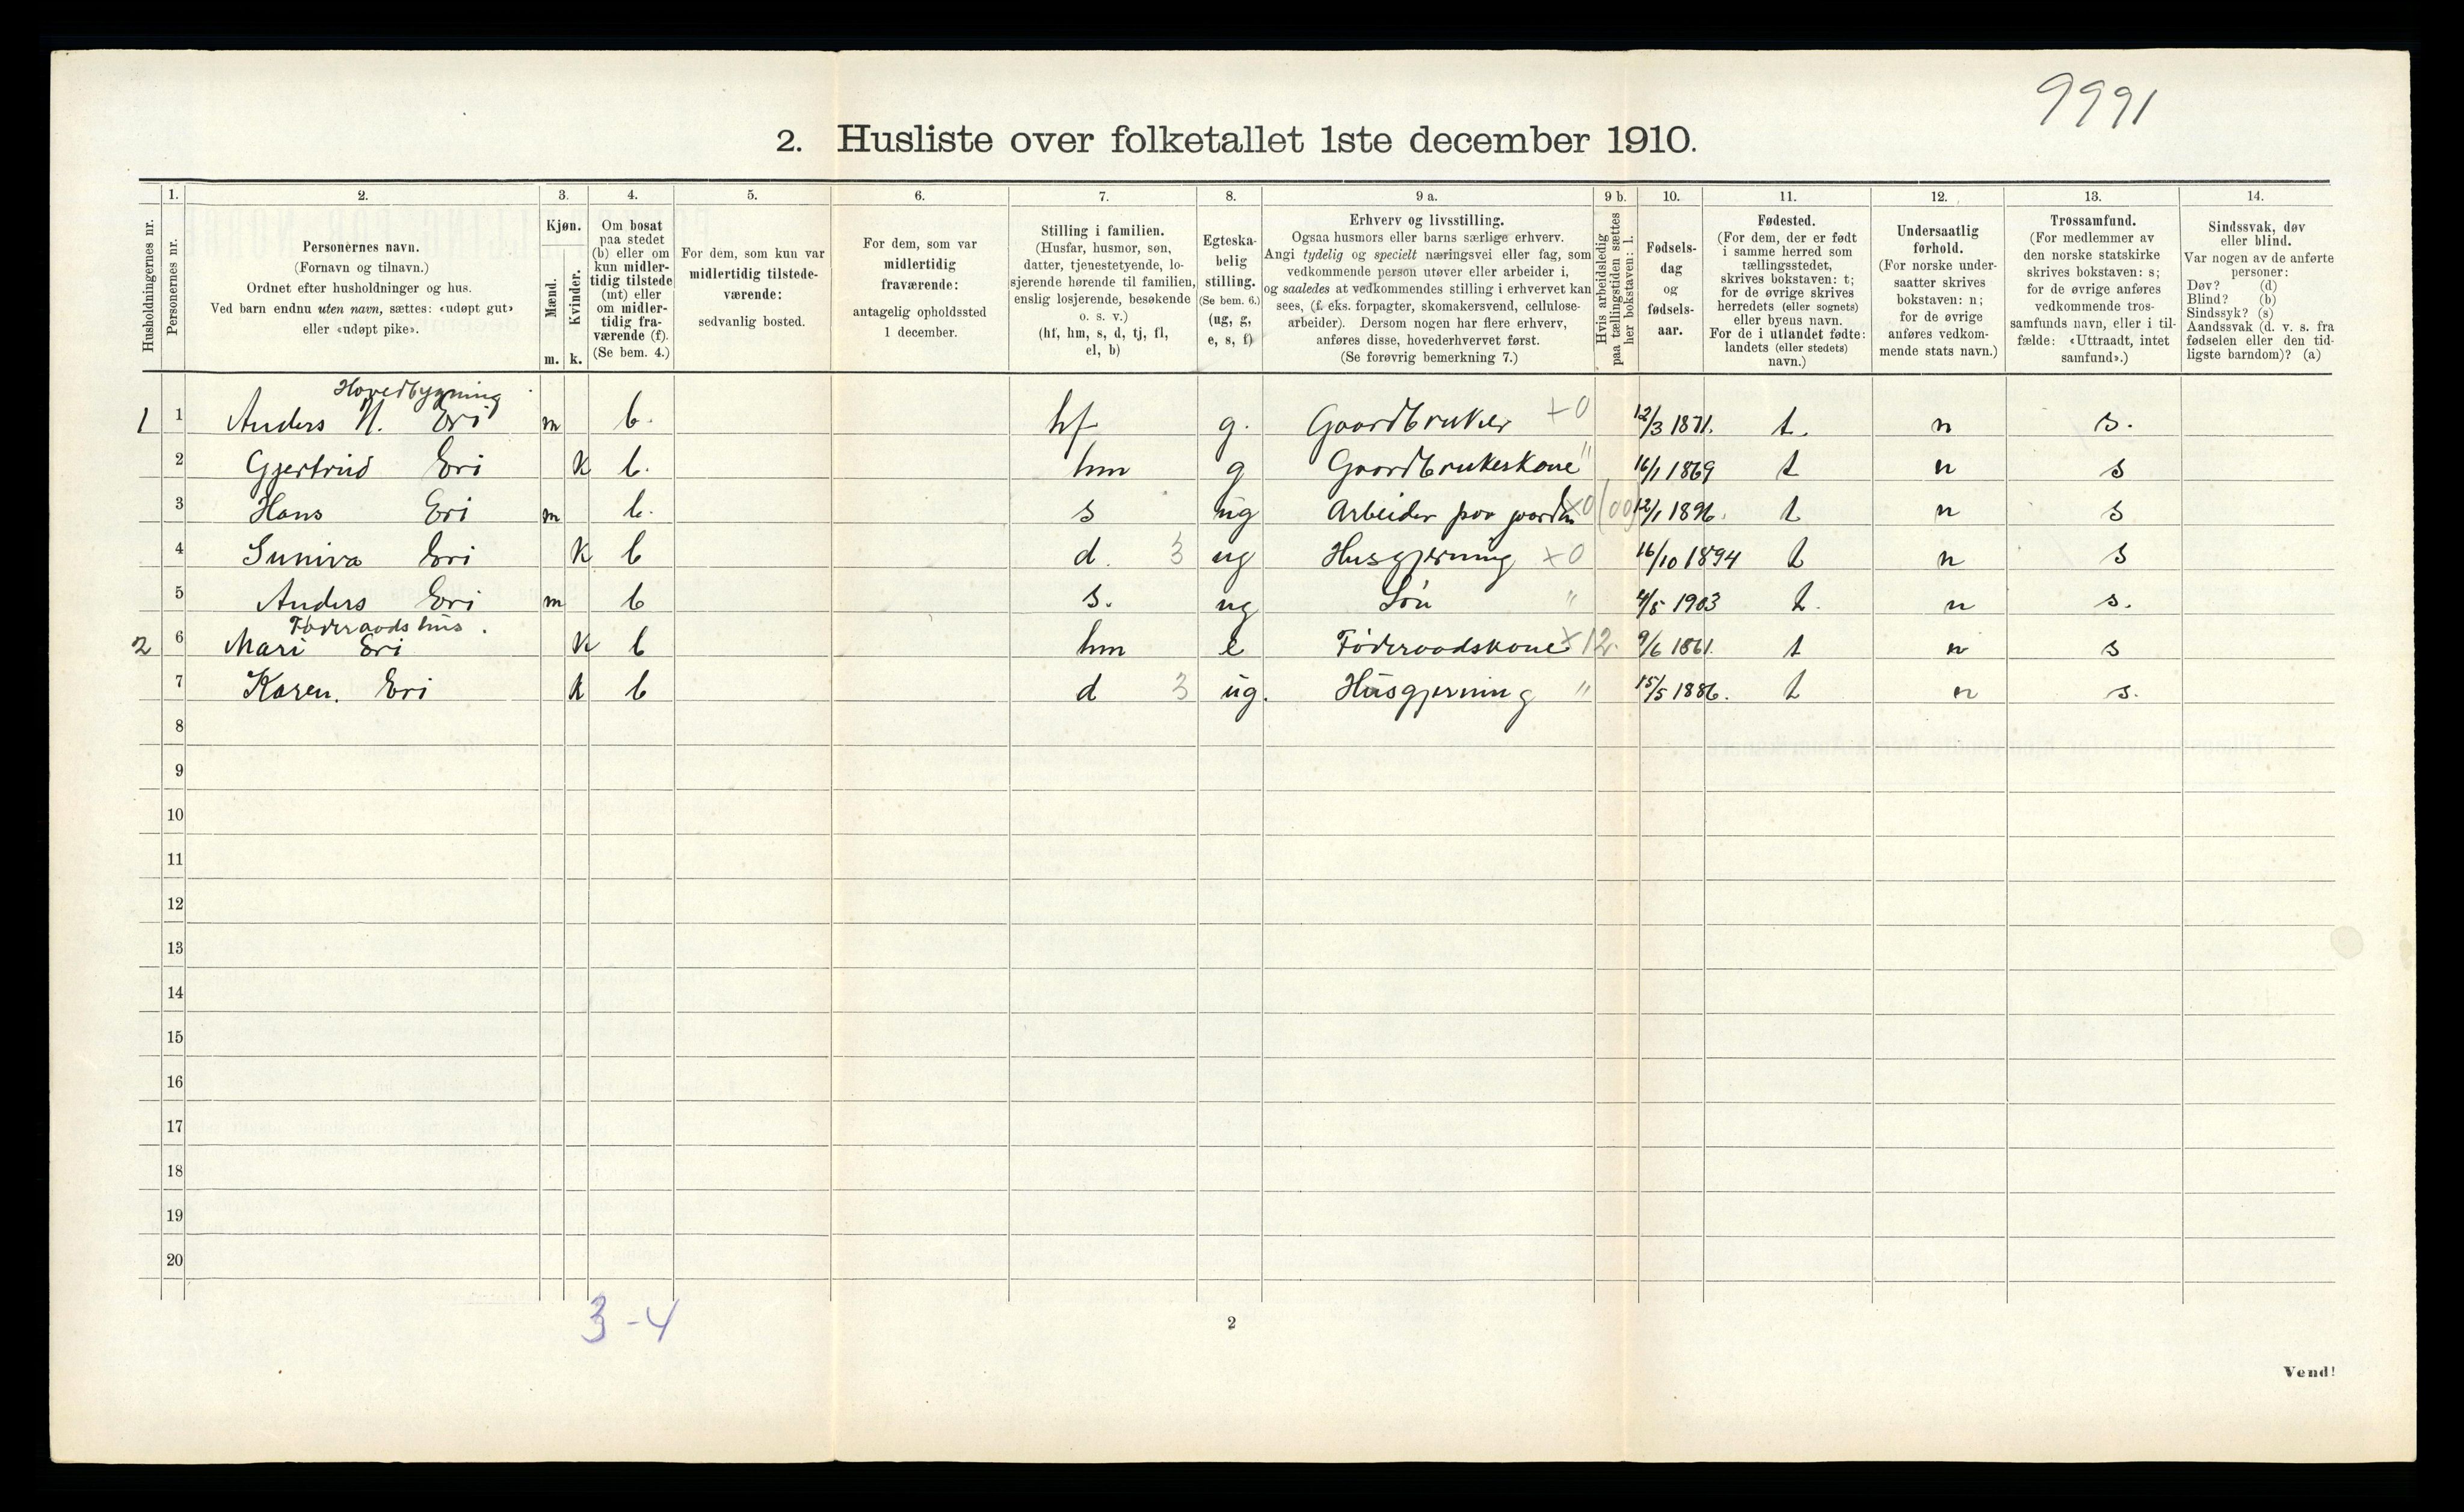 9991
2. Husliste over folketallet 1ste december 1910.
Husholdningernes nr.
1.
Personernes nr.
2.
Personernes navn.
(Fornavn og tilnavn.)
Ordnet efter husholdninger og hus.
Ved barn endnu uten navn, sættes: «udøpt gut»
eller «udøpt pike».
3.
Kjøn.
Mænd.
Kvinder.
m. k.
4.
Om bosat
paa stedet
(b) eller om
kun midler-
tidig tilstede
(mt) eller
om midler-
tidig fra-
værende (f).
(Se bem. 4.)
5.
For dem, som kun var
midlertidig tilstede-
værende:
sedvanlig bosted.
6.
For dem, som var
midlertidig
fraværende:
antagelig opholdssted
1 december.
7.
Stilling i familien.
(Husfar, husmor, søn,
datter, tjenestetyende, lo-
sjerende hørende til familien,
enslig losjerende, besøkende
o. s. v.)
(hf, hm, s, d, tj, fl,
el, b)
8.
Egteska-
belig
stilling.
(Se bem. 6.)
(ug, g,
e, s, f)
9 a.
Erhverv og livsstilling.
Ogsaa husmors eller barns særlige erhverv.
Angi tydelig og specielt næringsvei eller fag, som
vedkommende person utøver eller arbeider i,
og saaledes at vedkommendes stilling i erhvervet kan
sees, (f. eks. forpagter, skomakersvend, cellulose-
arbeider). Dersom nogen har flere erhverv,
anføres disse, hovederhvervet først.
(Se forøvrig bemerkning 7.)
9 b.
Hvis arbeidsledig
paa tællingstiden sættes
her bokstaven: l.
10.
Fødsels-
dag
og
fødsels-
aar.
11.
Fødested.
(For dem, der er født
i samme herred som
tællingsstedet,
skrives bokstaven: t;
for de øvrige skrives
herredets (eller sognets)
eller byens navn.
For de i utlandet fødte:
landets (eller stedets)
navn.)
12.
Undersaatlig
forhold.
(For norske under-
saatter skrives
bokstaven: n;
for de øvrige
anføres vedkom-
mende stats navn.)
13.
Trossamfund.
(For medlemmer av
den norske statskirke
skrives bokstaven: s;
for de øvrige anføres
vedkommende tros-
samfunds navn, eller i til-
fælde: «Uttraadt, intet
samfund».)
14.
Sindssvak, døv
eller blind.
Var nogen av de anførte
personer:
Døv? (d)
Blind? (b)
Sindssyk? (s)
Aandssvak (d. v. s. fra
fødselen eller den tid-
ligste barndom)? (a)
Hovedbygning
1 1 Anders N. Eri m b. hf g. Gaardbruker +0 12/3 1871. t. n s.
2 Gjertrud Eri k b. hm g Gaardbrukerskone " 16/1 1869 t n s
3 Hans Eri m b. s ug Arbeider paa gaarden x0 12/1 1896. t n s
4 Suniva Eri k b d. 3 ug Husgjerning x0 16/10 1894 t n s
5 Anders Eri m b s. ug Søn " 4/5 1903 t. n s.
Føderaadshus.
2 6 Mari Eri k b hm e Føderaadskone x12. 9/6 1861. t n s
7 Karen. Eri k b d 3 ug. Husgjerning " 15/5 1886. t n s.
8
9
10
11
12
13
14
15
16
17
18
19
20
3-4
2
Vend!